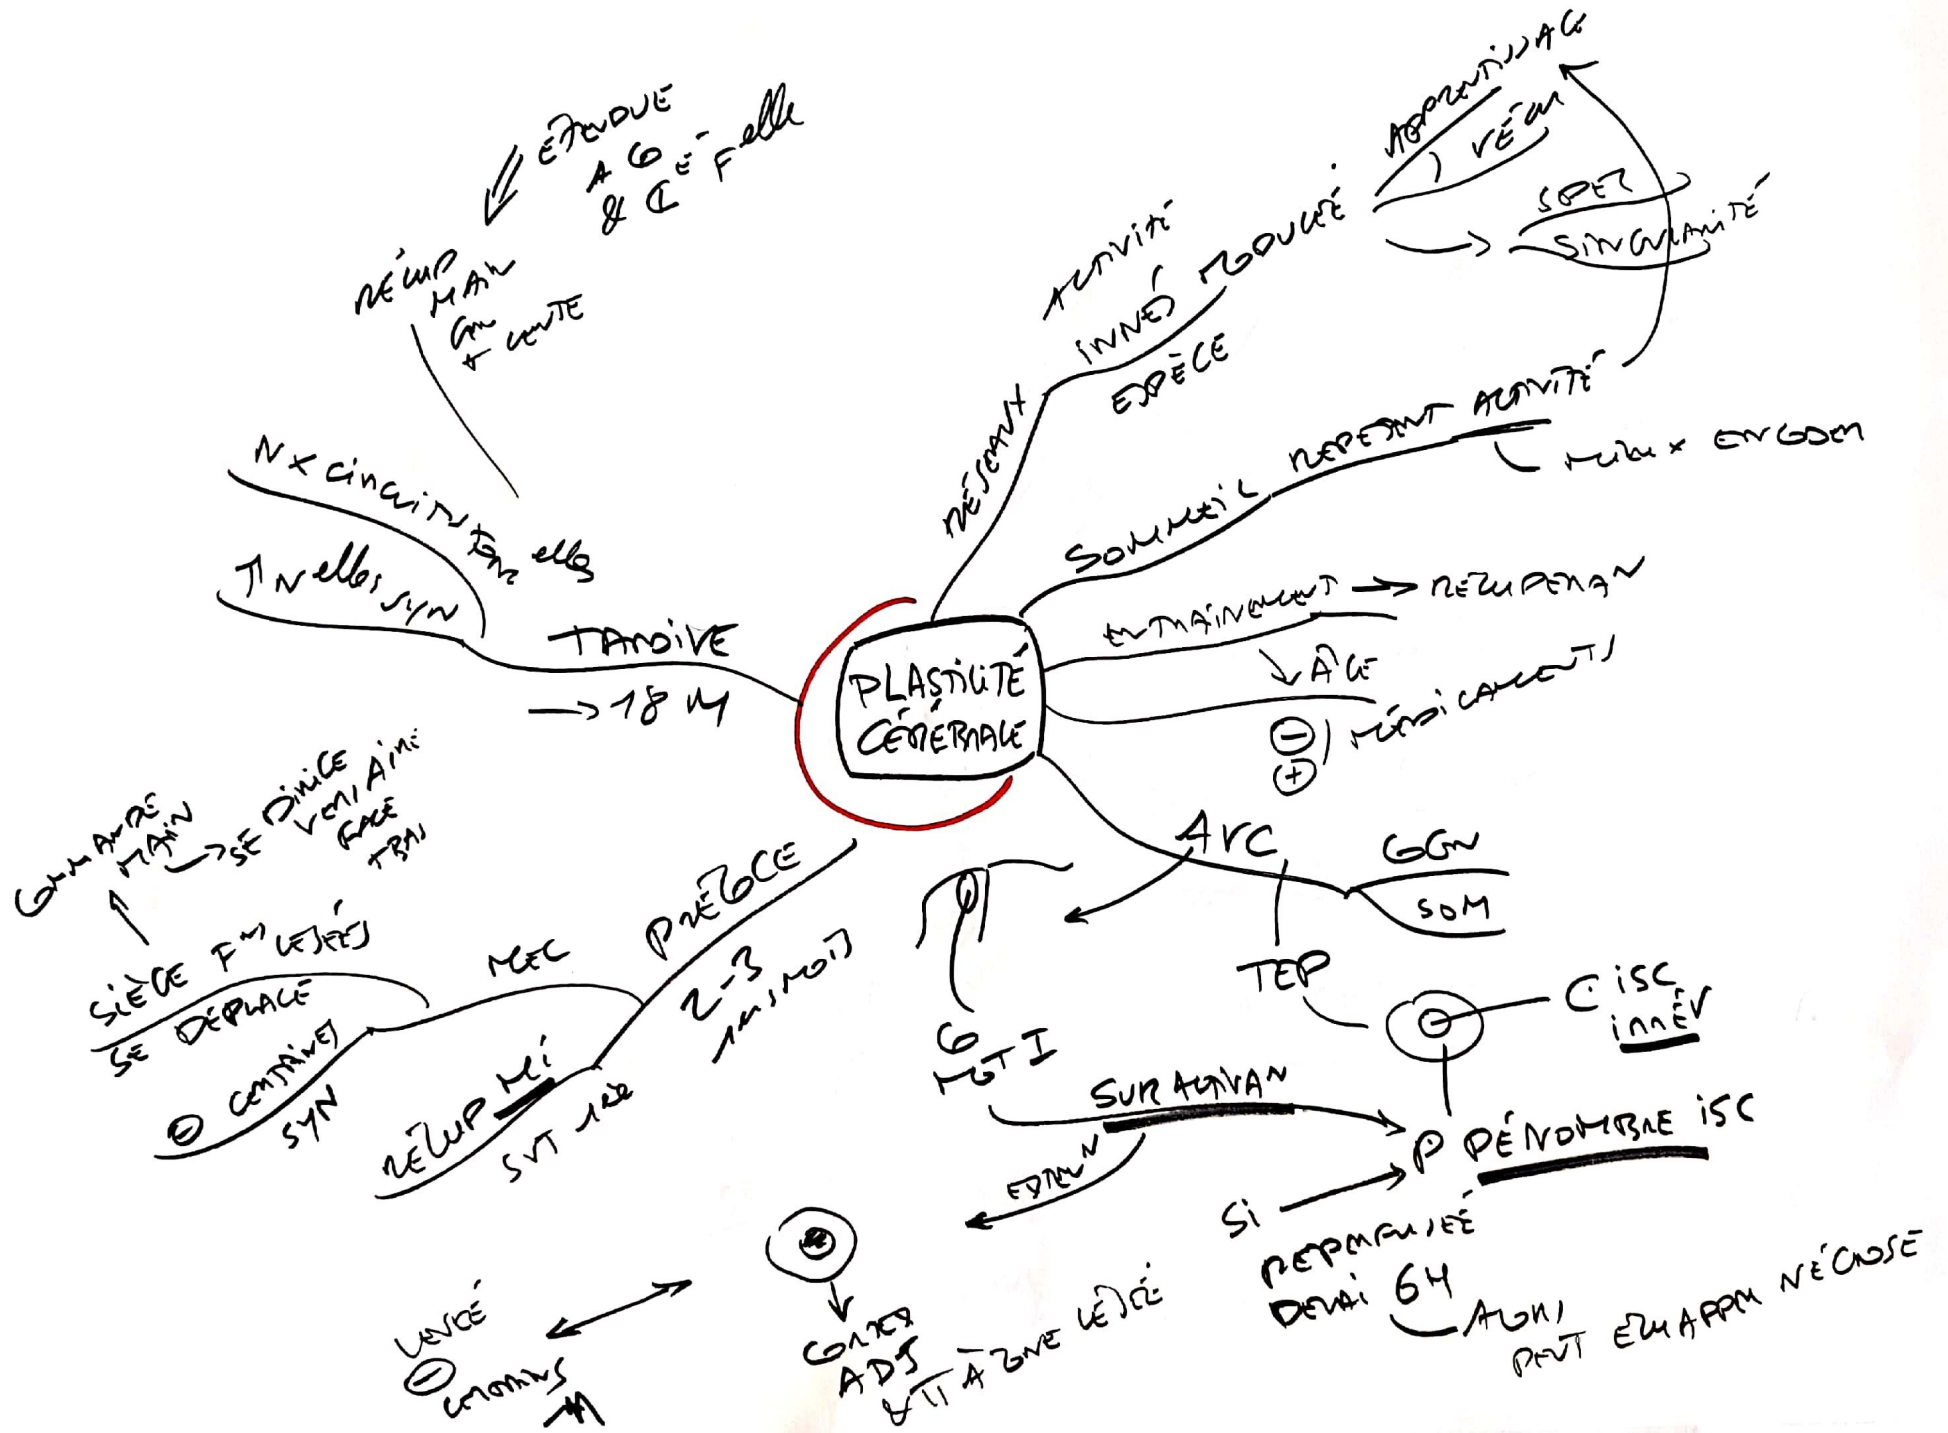 PLASTICITÉ
CÉRÉBRALE
RÉSEAUX
ACTIVITÉ
INNÉS MODULÉ
ESPÈCE
APPRENTISSAGE
VÉCU
SPER
SINGULARITÉ
SOMMEIL REPESANT ACTIVITÉ
ENTRAÎNEMENT → RECUPERAN
↘ ÂGE
⊖ ⊕ ) MÉDICAMENTS
AVC
GGN
SOM
TEP
C. ISC
IRRÉV
P PÉNOMBRE ISC
SI
REPERFUSÉE
DELAI 6H
ALORS
PEUT ECHAPPER NÉCROSE
MOT I
SUR ACTIVAN
EXTEN N
CORTEX
ADJ
À ZONE LÉSÉE
LEVÉE
⊖
CERTAINS
PRÉCOCE
2-3
1ERS MOIS
RÉCUP MI
SVT 1RE
MEC
SIÈGE FN LÉSÉES
SE DÉPLACE
⊖ CERTAINES
SYN
COMMANDE
MAIN
→ SE DIRIGE
VERS AIRE
FACE
BRAS
TARDIVE
→ 18 M
NX CIRCUITS
↑ NELLES SYN
RÉCUP
MAIN
+ LENTE
ÉTENDUE